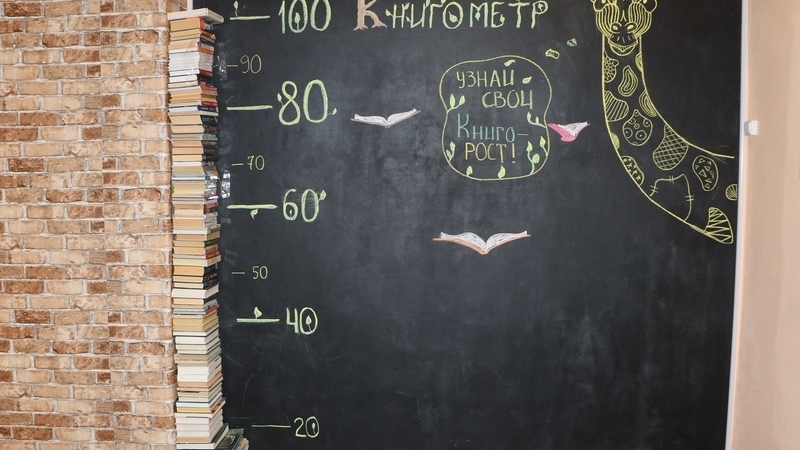 100 Книгометр
90
80
УЗНАЙ
СВОЙ
Книго-
РОСТ!
70
60
50
40
20